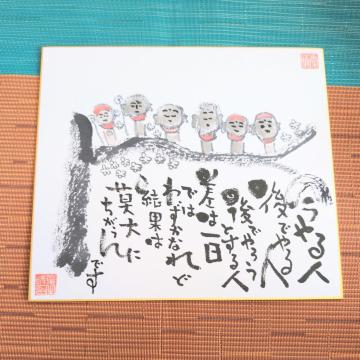 今やる人
後でやる人
後でやろう
とする人
差は一日
では
わずかなれど
結果は
莫大に
ちがうん
です